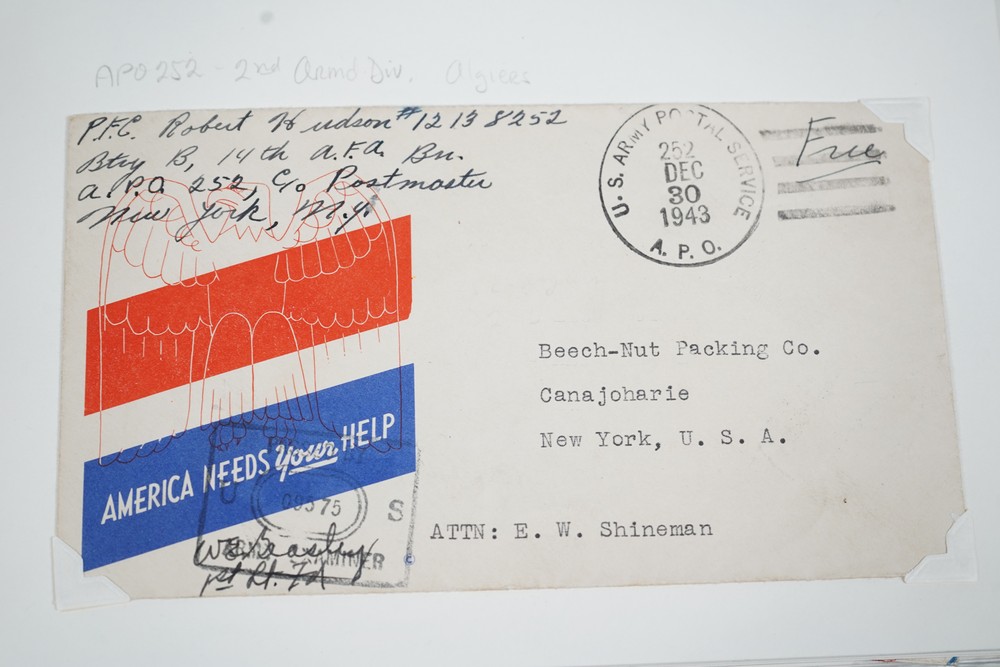 APO 252 - 2nd Armd Div. Algiees
P.F.C. Robert Hudson #12138252
Btry B, 14th A.F.A. Bn.
A.P.O. 252, C/o Postmaster
New York, N.Y.
U. S. ARMY POSTAL SERVICE
252
DEC
30
1943
A. P. O.
Free
Beech-Nut Packing Co.
Canajoharie
New York, U. S. A.
ATTN: E. W. Shineman
AMERICA NEEDS Your HELP
U S
ARMY EXAMINER
1st Lt.